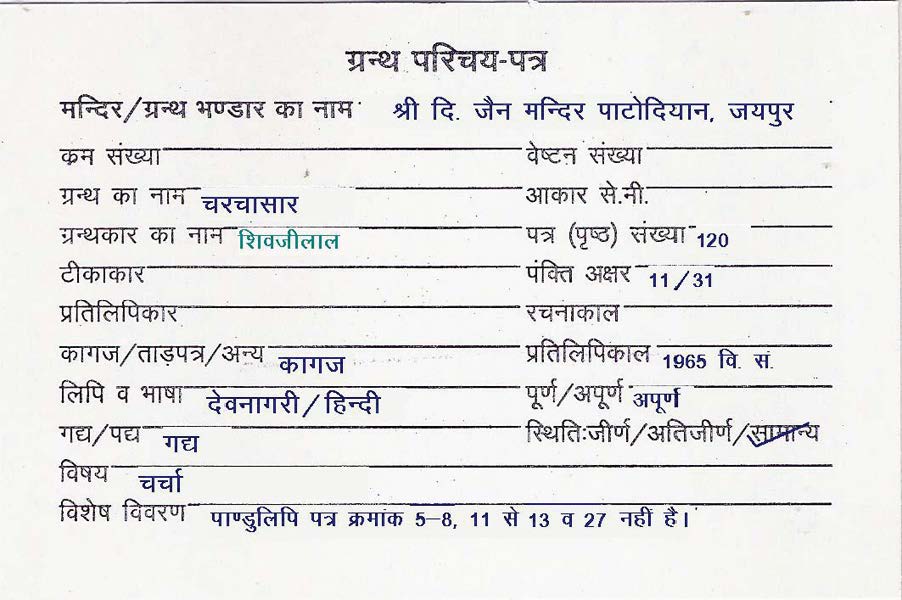 ग्रन्थ परिचय-पत्र
मन्दिर/ग्रन्थ भण्डार का नाम श्री दि. जैन मन्दिर पाटोदियान, जयपुर
क्रम संख्या वेष्टन संख्या
ग्रन्थ का नाम चरचासार आकार से.मी.
ग्रन्थकार का नाम शिवजीलाल पत्र (पृष्ठ) संख्या 120
टीकाकार पंक्ति अक्षर 11/31
प्रतिलिपिकार रचनाकाल
कागज/ताड़पत्र/अन्य कागज प्रतिलिपिकाल 1965 वि. सं.
लिपि व भाषा देवनागरी/हिन्दी पूर्ण/अपूर्ण अपूर्ण
गद्य/पद्य गद्य स्थितिःजीर्ण/अतिजीर्ण/सामान्य
विषय चर्चा
विशेष विवरण पाण्डुलिपि पत्र क्रमांक 5-8, 11 से 13 व 27 नहीं है।